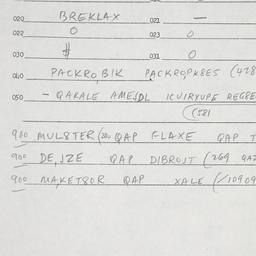 020 BREKLAX 021 —
022 0 023 0
030 # 031 0
040 PACKRO BIK PACKROPK8ES (428
050 - QAKALE AMESDL ICVIRYUPS REGRE
(581
900 MULSTER (200 QAP FLAXE QAP T
900 DE,JZE QAP DIBROST (269 QAZ
900 MAKETSOR QAP XALE (/10909